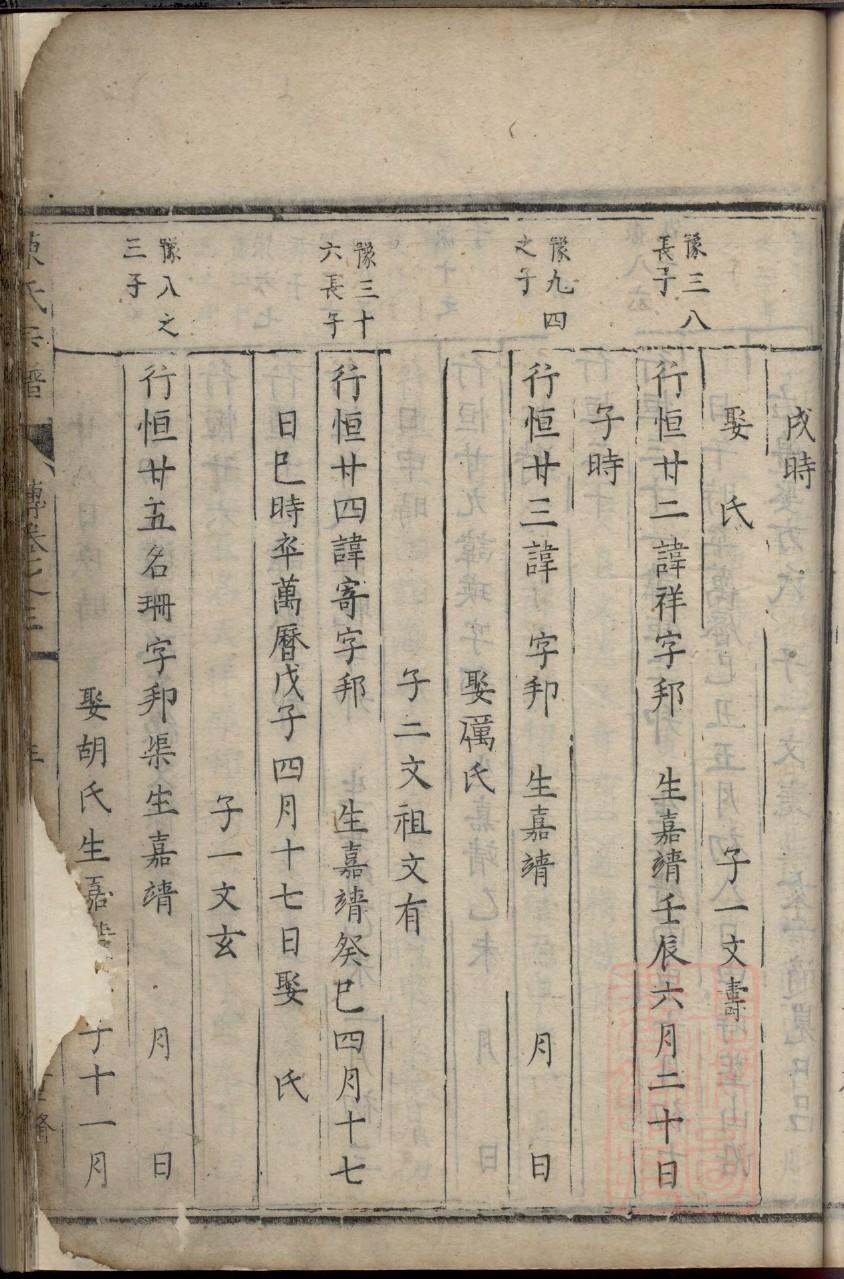 戌時
娶 氏 子一文壽
豫三八
長子
行恒廿二諱祥字邦 生嘉靖壬辰六月二十日
子時
豫九四
之子
行恒廿三諱 字邦 生嘉靖 月 日
娶厲氏
子二文祖文有
豫三十
六長子
行恒廿四諱寄字邦 生嘉靖癸巳四月十七
日巳時卒萬曆戊子四月十七日娶 氏
子一文玄
豫八之
三子
行恒廿五名珊字邦渠生嘉靖 月 日
娶胡氏生嘉靖 子十一月
陳氏宗譜 傳卷之三